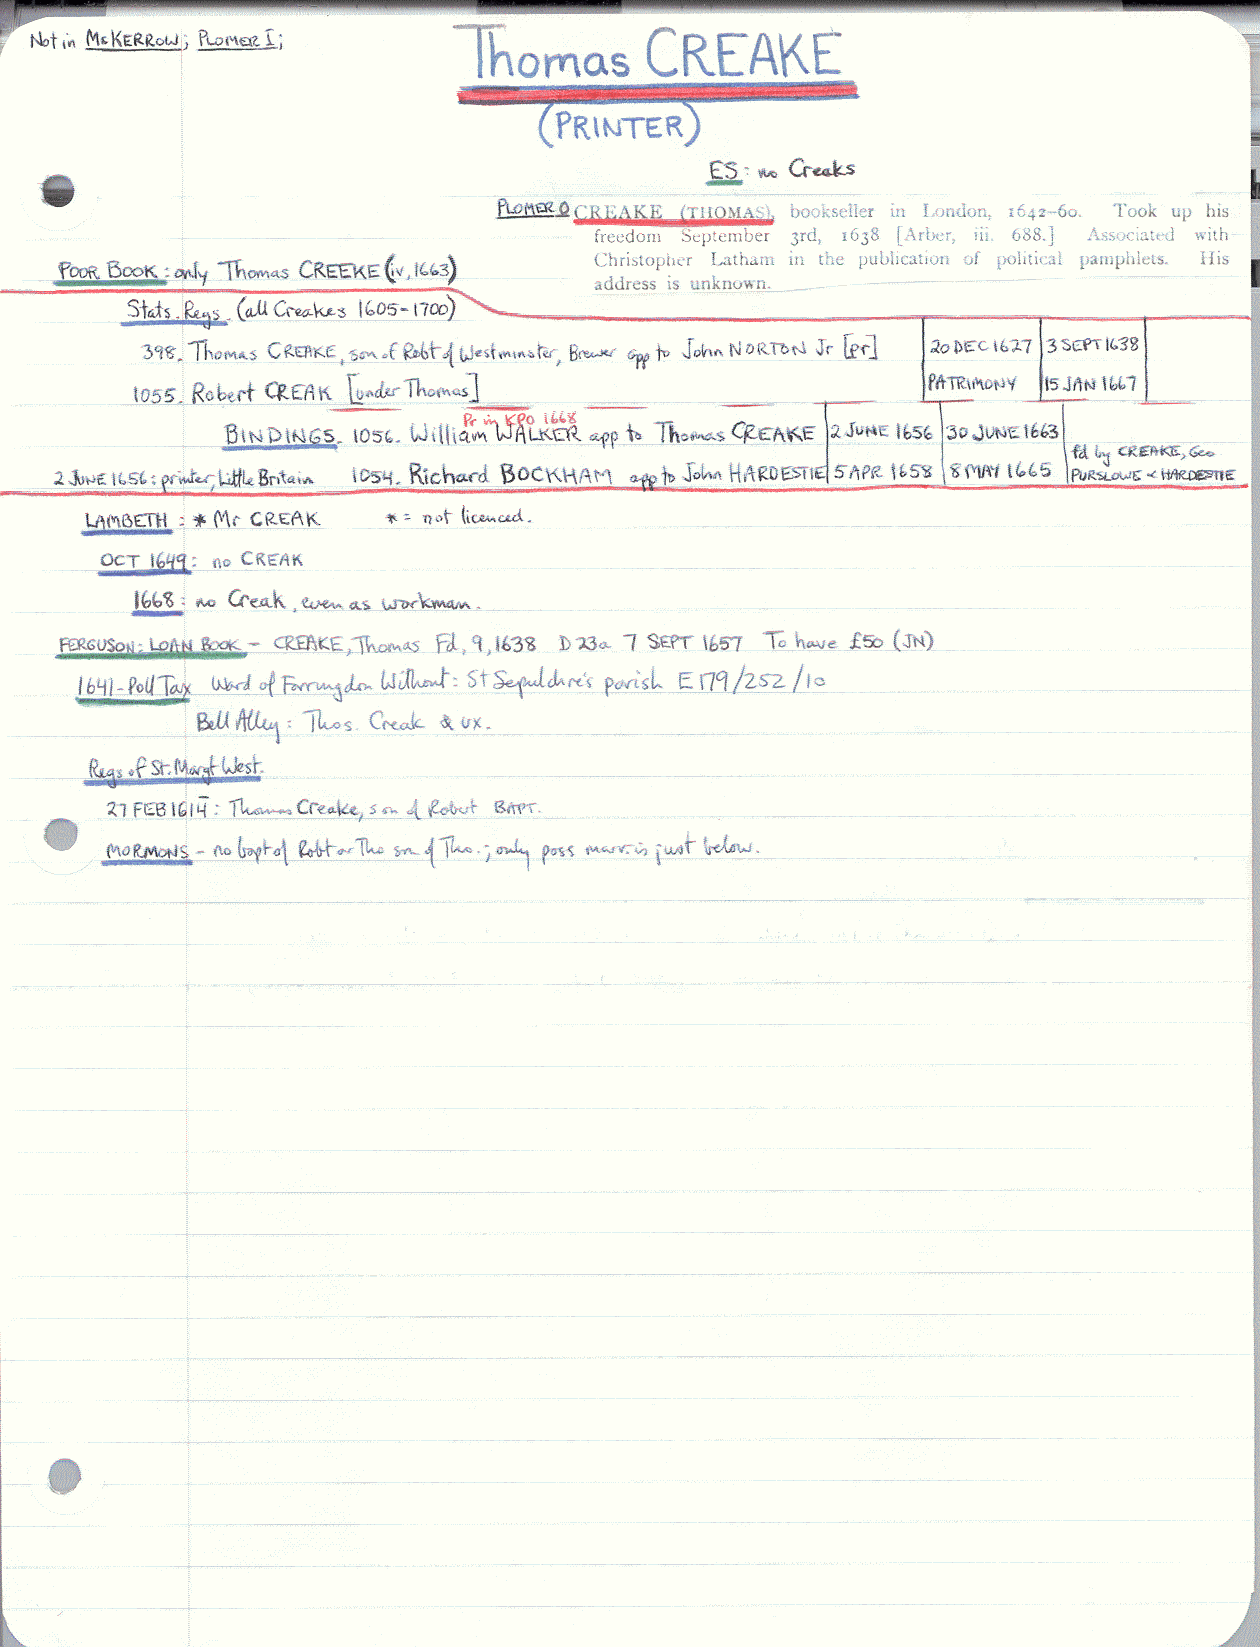 Not in McKERROW; PLOMER I;
Thomas CREAKE
(PRINTER)
ES: no Creaks
PLOMER 0 CREAKE (THOMAS), bookseller in London, 1642–60. Took up his
freedom September 3rd, 1638 [Arber, iii. 688.] Associated with
Christopher Latham in the publication of political pamphlets. His
address is unknown.
POOR BOOK: only Thomas CREEKE (iv, 1663)
Stats. Regs. (all Creakes 1605-1700)
398. Thomas CREAKE, son of Robt of Westminster, Brewer app to John NORTON Jr [pr] 20 DEC 1627 3 SEPT 1638
1055. Robert CREAK [under Thomas] PATRIMONY 15 JAN 1667
Pr in KPO 1668
BINDINGS. 1056. William WALKER app to Thomas CREAKE 2 JUNE 1656 30 JUNE 1663
fd by CREAKE, Geo
2 JUNE 1656: printer, Little Britain 1054. Richard BOCKHAM app to John HARDESTIE 5 APR 1658 8 MAY 1665 PURSLOWE & HARDESTIE
LAMBETH: * Mr CREAK * = not licenced.
OCT 1649: no CREAK
1668: no Creak, even as workman.
FERGUSON: LOAN BOOK – CREAKE, Thomas Fd, 9, 1638 D 23a 7 SEPT 1657 To have £50 (JN)
1641-Poll Tax Ward of Farringdon Without: St Sepulchre's parish E179/252/10
Bell Alley: Thos. Creak & ux.
Regs of St. Margt West.
27 FEB 1614: Thomas Creake, son of Robert BAPT.
MORMONS – no bapt of Robt or Tho son of Tho.; only poss marr. is just below.